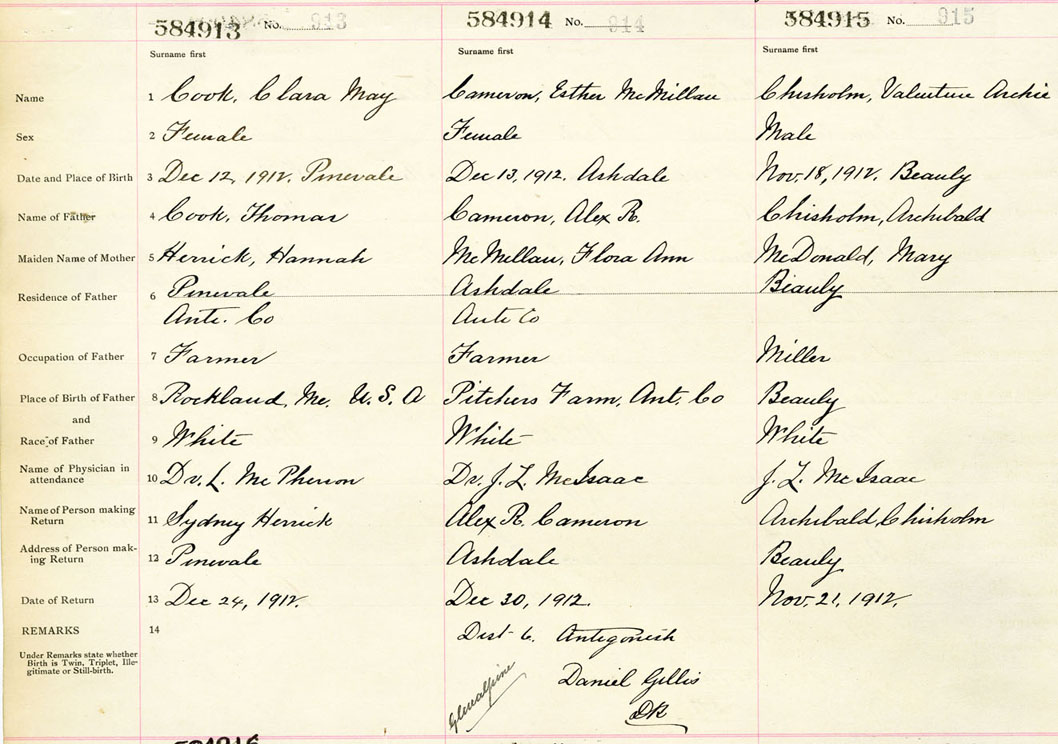 584913 No. 913 584914 No. 914 584915 No. 915
Surname first Surname first Surname first
Name 1 Cook, Clara May Cameron, Esther McMillan Chisholm, Valentine Archie
Sex 2 Female Female Male
Date and Place of Birth 3 Dec 12, 1912. Pinevale Dec 13, 1912. Ashdale Nov. 18, 1912. Beauly
Name of Father 4 Cook, Thomas Cameron, Alex R. Chisholm, Archibald
Maiden Name of Mother 5 Herrick, Hannah McMillan, Flora Ann McDonald, Mary
Residence of Father 6 Pinevale Ashdale Beauly
Ant. Co Ant Co
Occupation of Father 7 Farmer Farmer Miller
Place of Birth of Father 8 Rockland, Me. U.S.A Pitchers Farm, Ant. Co Beauly
and
Race of Father 9 White White White
Name of Physician in
attendance 10 Dr. L. McPherson Dr. J. L. McIsaac J. L. McIsaac
Name of Person making
Return 11 Sydney Herrick Alex R. Cameron Archibald Chisholm
Address of Person mak-
ing Return 12 Pinevale Ashdale Beauly
Date of Return 13 Dec 24, 1912. Dec 30, 1912. Nov. 21, 1912.
REMARKS 14 Dist 6. Antigonish
Under Remarks state whether
Birth is Twin, Triplet, Ille-
gitimate or Still-birth.
Daniel Gillis
Glenalpine DR
584916